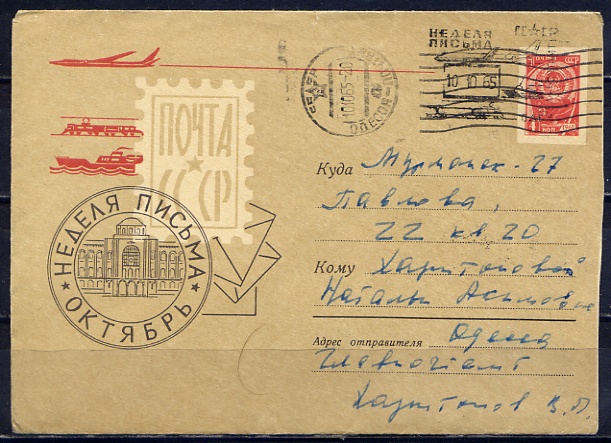 НЕДЕЛЯ
ПИСЬМА
10 10 65
ПОЧТА СССР
101065-20
ОДЕССА
ПОЧТА
СССР
НЕДЕЛЯ ПИСЬМА
ОКТЯБРЬ
Куда Мурманск-27
Павлова,
22 кв. 20
Кому Харитоновой
Наталье
Адрес отправителя Одесса
Главпочтамт
Харитонов В.П.